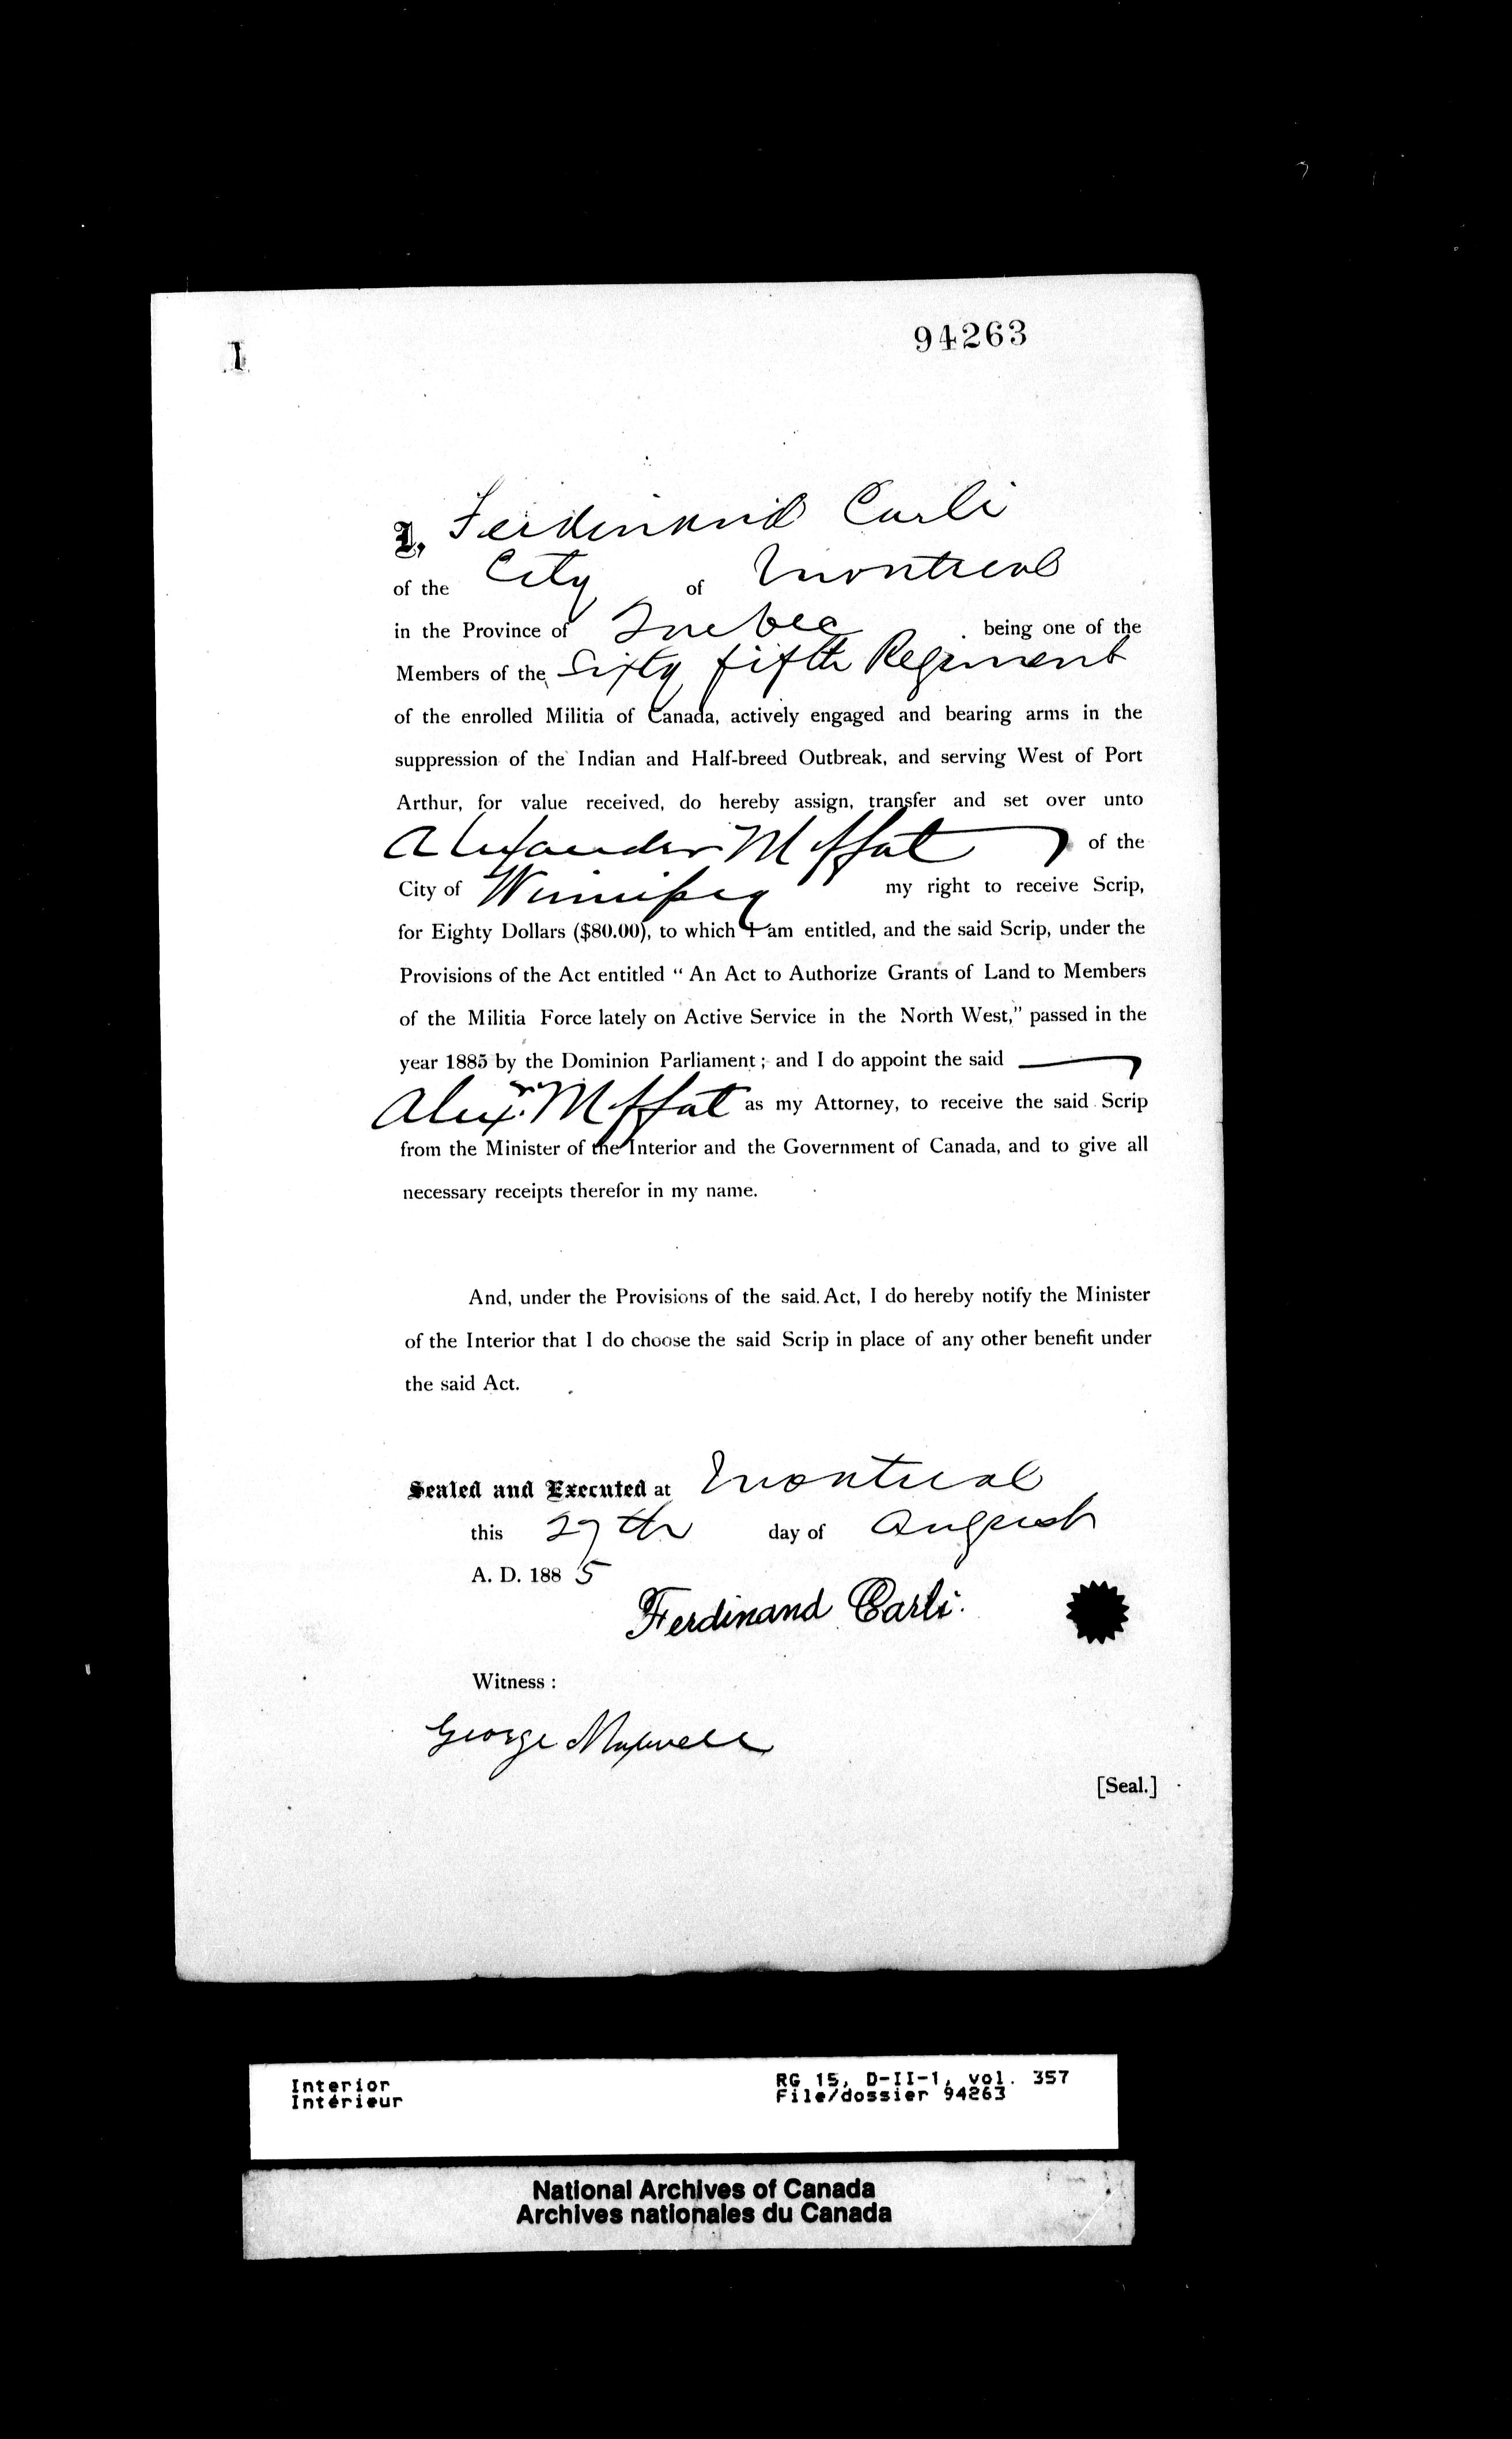 94263
I
I, Ferdinand Carli
of the City of Montreal
in the Province of Quebec being one of the
Members of the Sixty fifth Regiment
of the enrolled Militia of Canada, actively engaged and bearing arms in the
suppression of the Indian and Half-breed Outbreak, and serving West of Port
Arthur, for value received, do hereby assign, transfer and set over unto
Alexander Moffat of the
City of Winnipeg my right to receive Scrip,
for Eighty Dollars ($80.00), to which I am entitled, and the said Scrip, under the
Provisions of the Act entitled “ An Act to Authorize Grants of Land to Members
of the Militia Force lately on Active Service in the North West,” passed in the
year 1885 by the Dominion Parliament ; and I do appoint the said
Alexr. Moffat as my Attorney, to receive the said Scrip
from the Minister of the Interior and the Government of Canada, and to give all
necessary receipts therefor in my name.
And, under the Provisions of the said Act, I do hereby notify the Minister
of the Interior that I do choose the said Scrip in place of any other benefit under
the said Act.
Sealed and Executed at Montreal
this 27th day of August
A. D. 1885
Ferdinand Carli.
Witness :
George Maxwell
[Seal.]
Interior RG 15, D-II-1, vol. 357
Intérieur File/dossier 94263
National Archives of Canada
Archives nationales du Canada